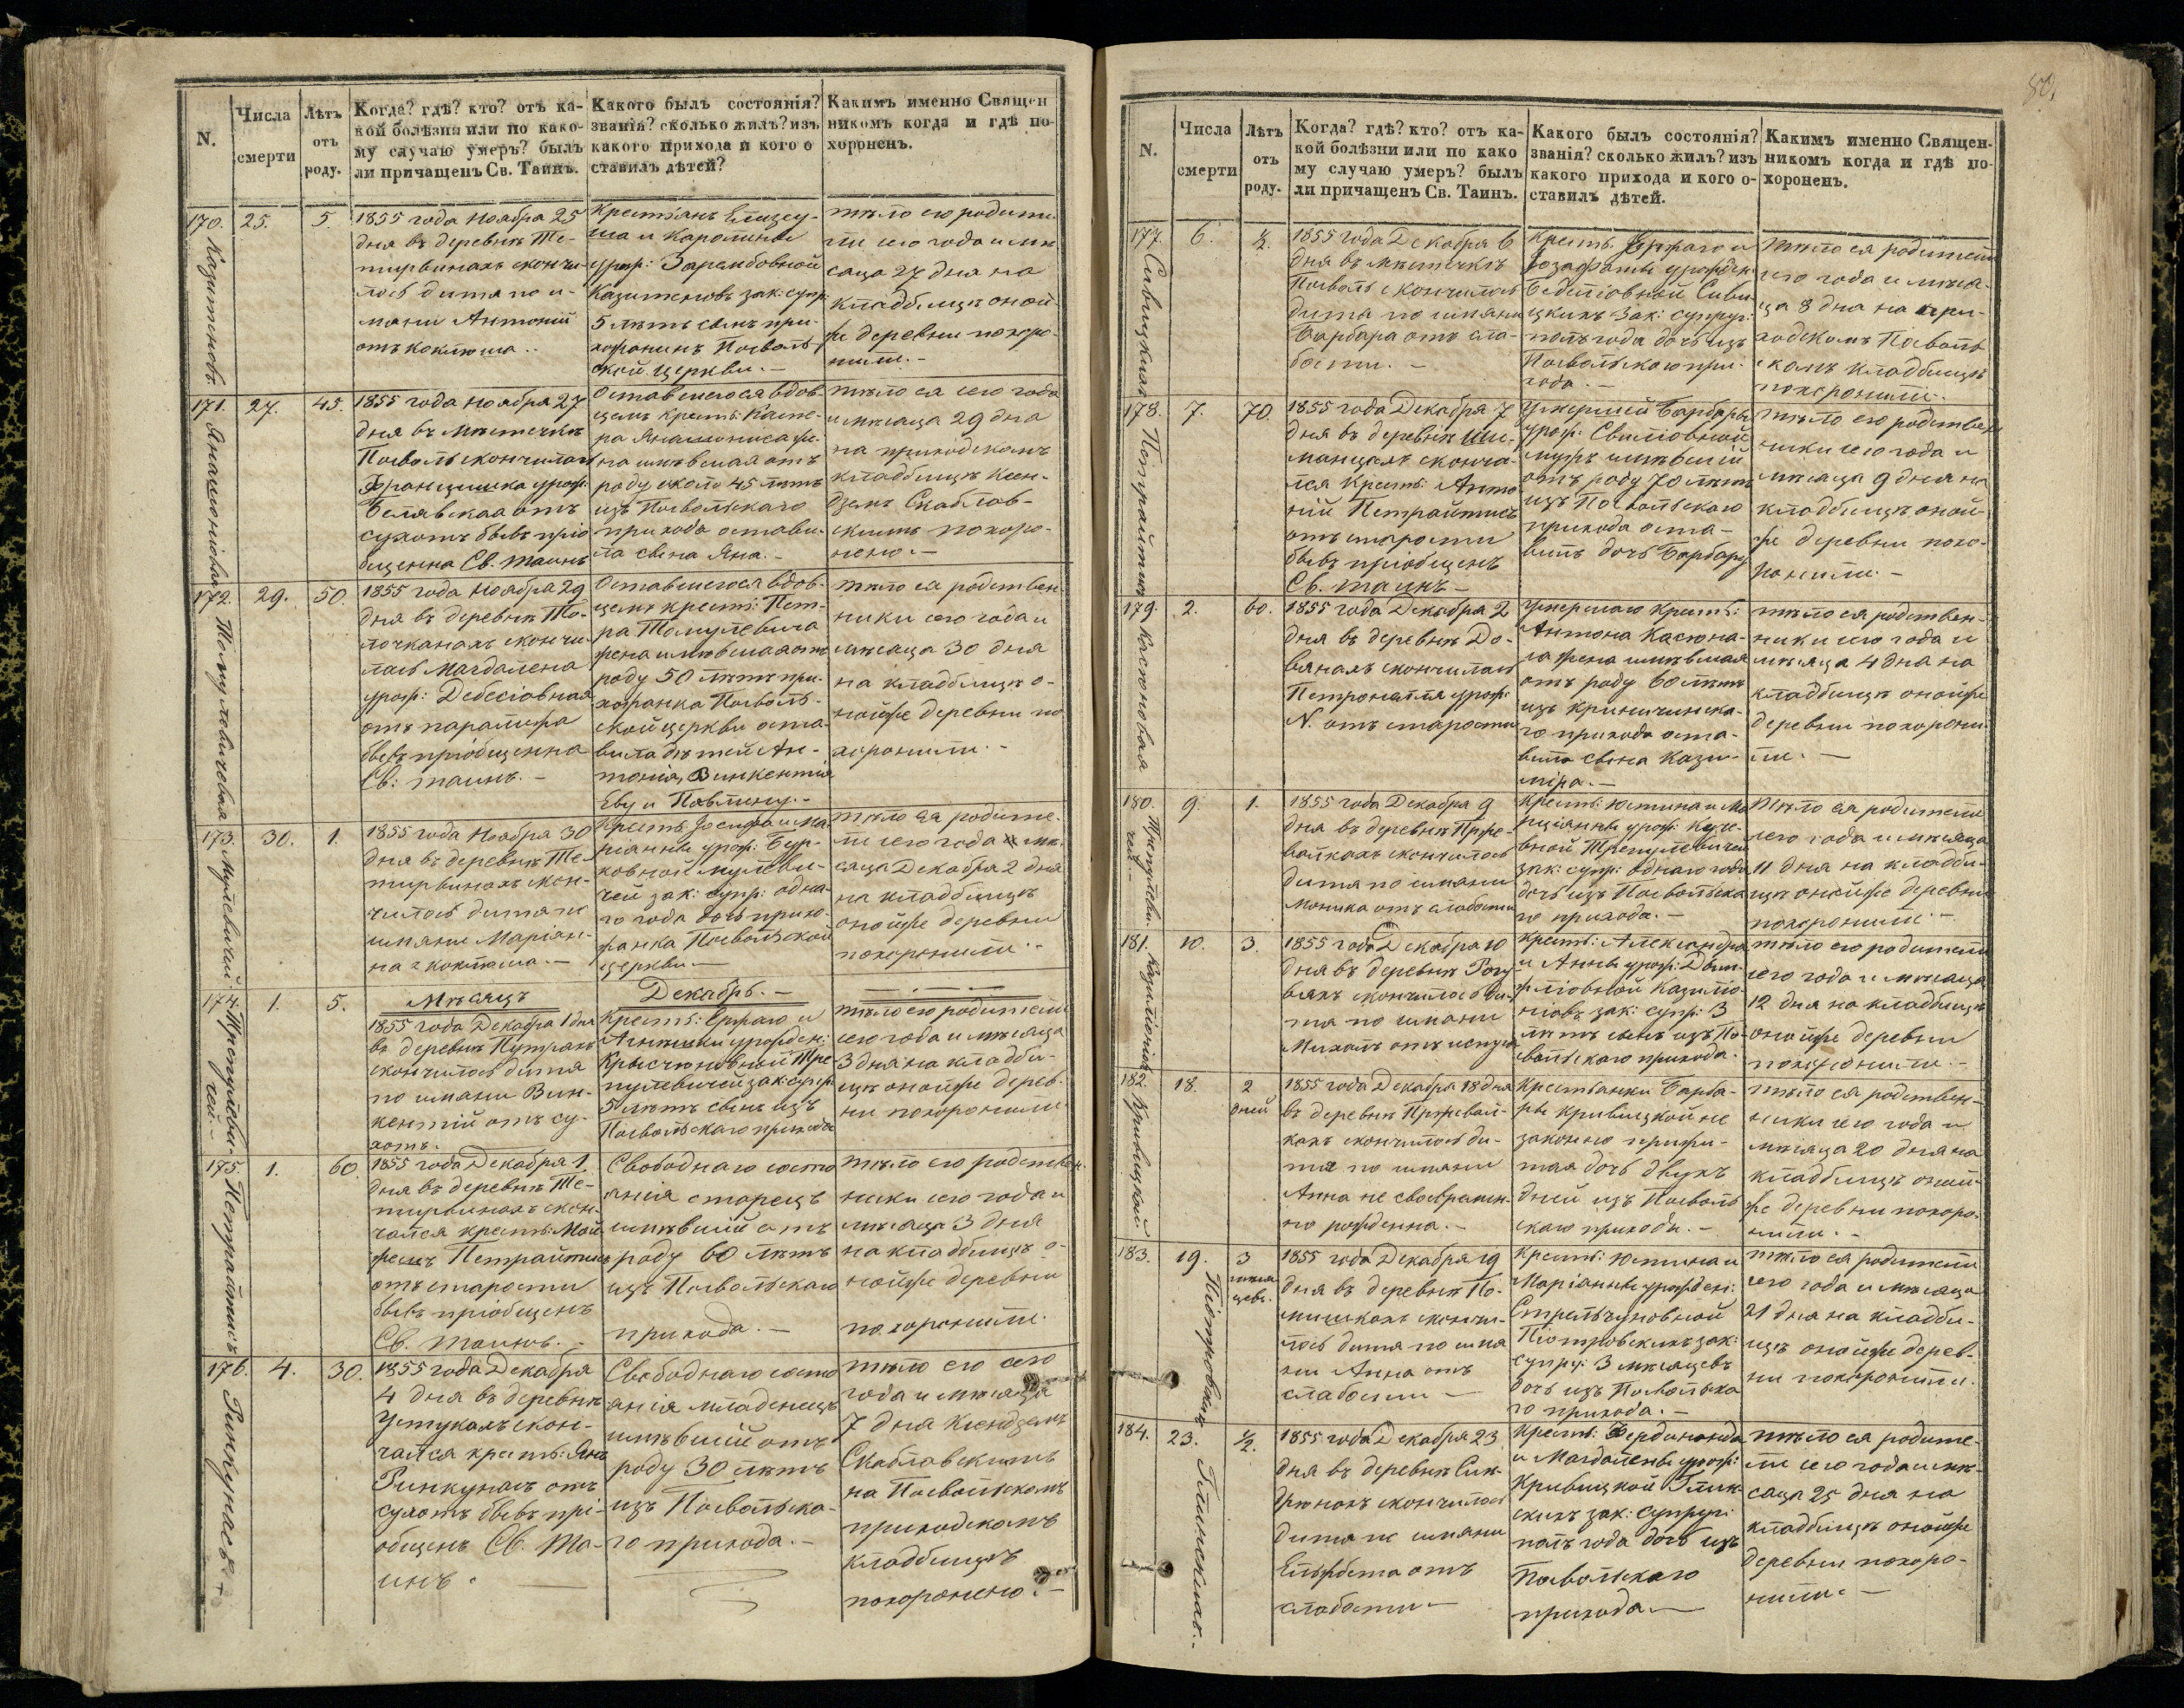 N.
Числа
смерти
Лѣтъ
отъ
роду.
Когда? гдѣ? кто? отъ ка-
кой болѣзни или по како-
му случаю умеръ? былъ
ли причащенъ Св. Таинъ.
Какого былъ состоянія?
званія? сколько жилъ? изъ
какого прихода и кого о
ставилъ дѣтей?
Какимъ именно Священ
никомъ когда и гдѣ по-
хороненъ.
170.
25.
5.
1855 года Ноября 25
дня въ деревнѣ Те-
тирвинахъ скончи-
лось дитя по и-
мени Антоній
отъ коклюша..
Крестьянъ
и Каролины
урож: Зарембовной
зак: супр:
5 лѣтъ сынъ при-
хожанинъ Посволь-
ской церкви.-
тѣло его родите-
ли сего года и мѣ
сяца 27 дня на
кладбищѣ оной-
же деревни похоро-
нили.-
171.
27.
45.
1855 года Ноября 27
дня въ мѣстечкѣ
Посволь скончилась
Францишка урож:
Белявская отъ
сухотъ бывъ пріо
бщенна Св. таинъ
Оставшегося вдов-
цемъ крест: Каспе-
ра Янашониса же-
на имѣвшая отъ
роду около 45 лѣтъ
изъ Посвольскаго
прихода остави-
ла сына Яна.-
тѣло ея сего года
и мѣсяца 29 дня
на приходскомъ
кладбищѣ ксен-
дземъ Скаблов-
скимъ похоро-
нено.-
172.
29.
50.
1855 года Ноября 29
дня въ деревнѣ То-
лочканахъ скончи-
лась Магдалена
урож: Дебесіовная
отъ паралижа
бывъ пріобщенна
Св: таинъ.-
Оставшегося вдов-
цемъ крест: Пет-
ра Томулевича
жена имѣвшая отъ
роду 50 лѣтъ при-
хожанка Посволь-
ской церкви оста-
вила дѣтей Ан-
тонія, Винкентія
Еву и Павлину.-
тѣло ея родствен-
ники сего года и
мѣсяца 30 дня
на кладбищѣ о-
нойже деревни по
хоронили.-
173.
30.
1.
1855 года Ноября 30
дня въ деревнѣ Те-
тирвинахъ скон-
чилось дитя по
имяни Маріан-
на з коклюша.-
Крест: Іосифа и Ма-
ріанны урож: Бур-
ковной Мулеви-
чей зак: супр: одна-
го года дочь прихо-
жанка Посвольской
церкви-
тѣло ея родите-
ли сего года и мѣ-
сяца Декабря 2 дня
на кладбищѣ
онойже деревни
похоронили.-
Мѣсяцъ
Декабрь.-
174.
1.
5.
1855 года Декабря 1 дня
въ деревнѣ Путрахъ
скончилось дитя
по имяни Вин-
кентій отъ су-
хотъ.
Крест: и
Агнешки урожден:
Тре-
пулевичей зак: супр:
5 лѣтъ сынъ изъ
Посвольскаго прихода
тѣло его родители
сего года и мѣсяца
3 дня на кладби-
щѣ онойже дерев-
ни похоронили
175.
1.
60.
1855 года Декабря 1
дня въ деревнѣ Те-
тирвинахъ скон-
чался крест: Мой-
жешъ Петрайтисъ
отъ старости
бывъ пріобщенъ
Св. таинъ.-
Свободнаго состо
янія старецъ
имѣвшій отъ
роду 60 лѣтъ
изъ Посвольскаго
прихода.-
тѣло его родствен-
ники сего года и
мѣсяца 3 дня
на кладбищѣ о-
нойже деревни
похоронили.
176.
4.
30.
1855 года Декабря
4 дня въ деревнѣ
Устукахъ скон-
чался крест: Янъ
Ринкунасъ отъ
сухотъ бывъ прі-
общенъ Св. Та-
инъ.
Свободнаго состо
янія младенецъ
имѣвшій отъ
роду 30 лѣтъ
изъ Посвольска-
го прихода.-
тѣло его сего
года и мѣсяца
7 дня ксендземъ
Скаблавскимъ
на Посвольскомъ
приходскомъ
кладбищѣ
похоронено.-
Янашоніовая
Томуловичовая
Мулевичей
Трепулеви-
чей.-
Петрайтисъ
Ринкунасъ.-
80.
N.
Числа
смерти
Лѣтъ
отъ
роду.
Когда? гдѣ? кто? отъ ка-
кой болѣзни или по како
му случаю умеръ? былъ
ли причащенъ Св. Таинъ.
Какого былъ состоянія?
званія? сколько жилъ? изъ
какого прихода и кого о-
ставилъ дѣтей.
Какимъ именно Священ-
никомъ когда и гдѣ по-
хороненъ.
177.
6.
½.
1855 года Декабря 6
дня въ мѣстечкѣ
Посволь скончилось
дитя по имяни
Барбара отъ сла-
бости.-
Крест: и
Іозафаты урожден:
Сиви-
цкихъ зак: супруг:
полъ года дочь изъ
Посвольскаго при-
хода.-
тѣло ея родители
сего года и мѣся-
ца 8 дня на при-
ходскомъ Посволь-
скомъ кладбищѣ
похоронили.
178.
7.
70.
1855 года Декабря 7
дня въ деревнѣ Ши-
манцахъ сконча-
лся Крест: Анто
ній Петрайтисъ
отъ старости
бывъ пріобщенъ
Св. таинъ-
Умершей Барбары
урож:
мужъ имѣвшій
отъ роду 70 лѣтъ
изъ Посвольскаго
прихода оста-
вилъ дочь Барбару
тѣло его родствен-
ники сего года и
мѣсяца 9 дня на
кладбищѣ оной-
же деревни похо-
ронили.-
179.
2.
60.
1855 года Декабря 2
дня въ деревнѣ До-
вянахъ скончилась
Петронелля урож:
N. отъ старости
Умершаго крест:
Антона Касюна-
са жена имѣвшая
отъ роду 60 лѣтъ
изъ Криничинска-
го прихода оста-
вила сына Кази-
міра.-
тѣло ея родствен-
ники сего года и
мѣсяца 4 дня на
кладбищѣ онойже
деревни похорони-
ли.-
180.
9.
1.
1855 года Декабря 9
дня въ деревнѣ Прже-
валкахъ скончилось
дитя по имяни
Моника отъ слабости
Крест: Юстина и Ма
ріанны урож:
вной Трепулевичей
зак: супр: однаго года
дочь изъ Посвольска
го прихода.-
тѣло ея родители
сего года и мѣсяца
11 дня на кладби-
щѣ онойже деревни
похоронили.-
181.
10.
3.
1855 года Декабря 10
дня въ деревнѣ Рагу-
вяхъ скончилось ди-
тя по имяни
Михалъ отъ испуга
Крест: Александра
и Анны урож:
Казиліо-
нисъ зак: супр: 3
лѣтъ сынъ изъ По-
свольскаго прихода.
тѣло его родители
сего года и мѣсяца
12 дня на кладбищѣ
онойже деревни
похоронили.-
182.
18.
2
дней
1855 года Декабря 18 дня
въ деревнѣ Пржевал-
кахъ скончилось ди-
тя по имяни
Анна не своевремен-
но рожденна.-
Крестьянки Барба-
ры Кривицкой не
законно прижи-
тая дочь двухъ
дней изъ Посволь
скаго прихода.-
тѣло ея родствен-
ники сего года и
мѣсяца 20 дня на
кладбищѣ оной-
же деревни похоро-
нили.-
183.
19.
3
мѣся
цевъ.
1855 года Декабря 19
дня въ деревнѣ По-
мишкахъ скончи-
лось дитя по имя
ни Анна отъ
слабости-
Крест: Юстина и
Маріанны урожден:
Стрельчуновной
Піотровскихъ зак:
супру: 3 мѣсяцевъ
дочь изъ Посвольска
го прихода.-
тѣло ея родители
сего года и мѣсяца
21 дня на кладби-
щѣ онойже дерев-
ни похоронили.
184.
23.
½.
1855 года Декабря 23
дня въ деревнѣ Син-
дитя по имяни
Ельжбета отъ
слабости-
Крест: Фердинанда
и Магдалены урож:
Кривицкой Глин-
скихъ зак: супруг:
полъ года дочь изъ
Посвольскаго
прихода.-
тѣло ея родите-
ли сего года и мѣ-
сяца 25 дня на
кладбищѣ онойже
деревни похоро-
нили.-
Сивицкая
Петрайтисъ
Касюновая
Трепулеви-
чей.-
Казиліонисъ
Кривицкой
Піотровскихъ
Глинскихъ.-